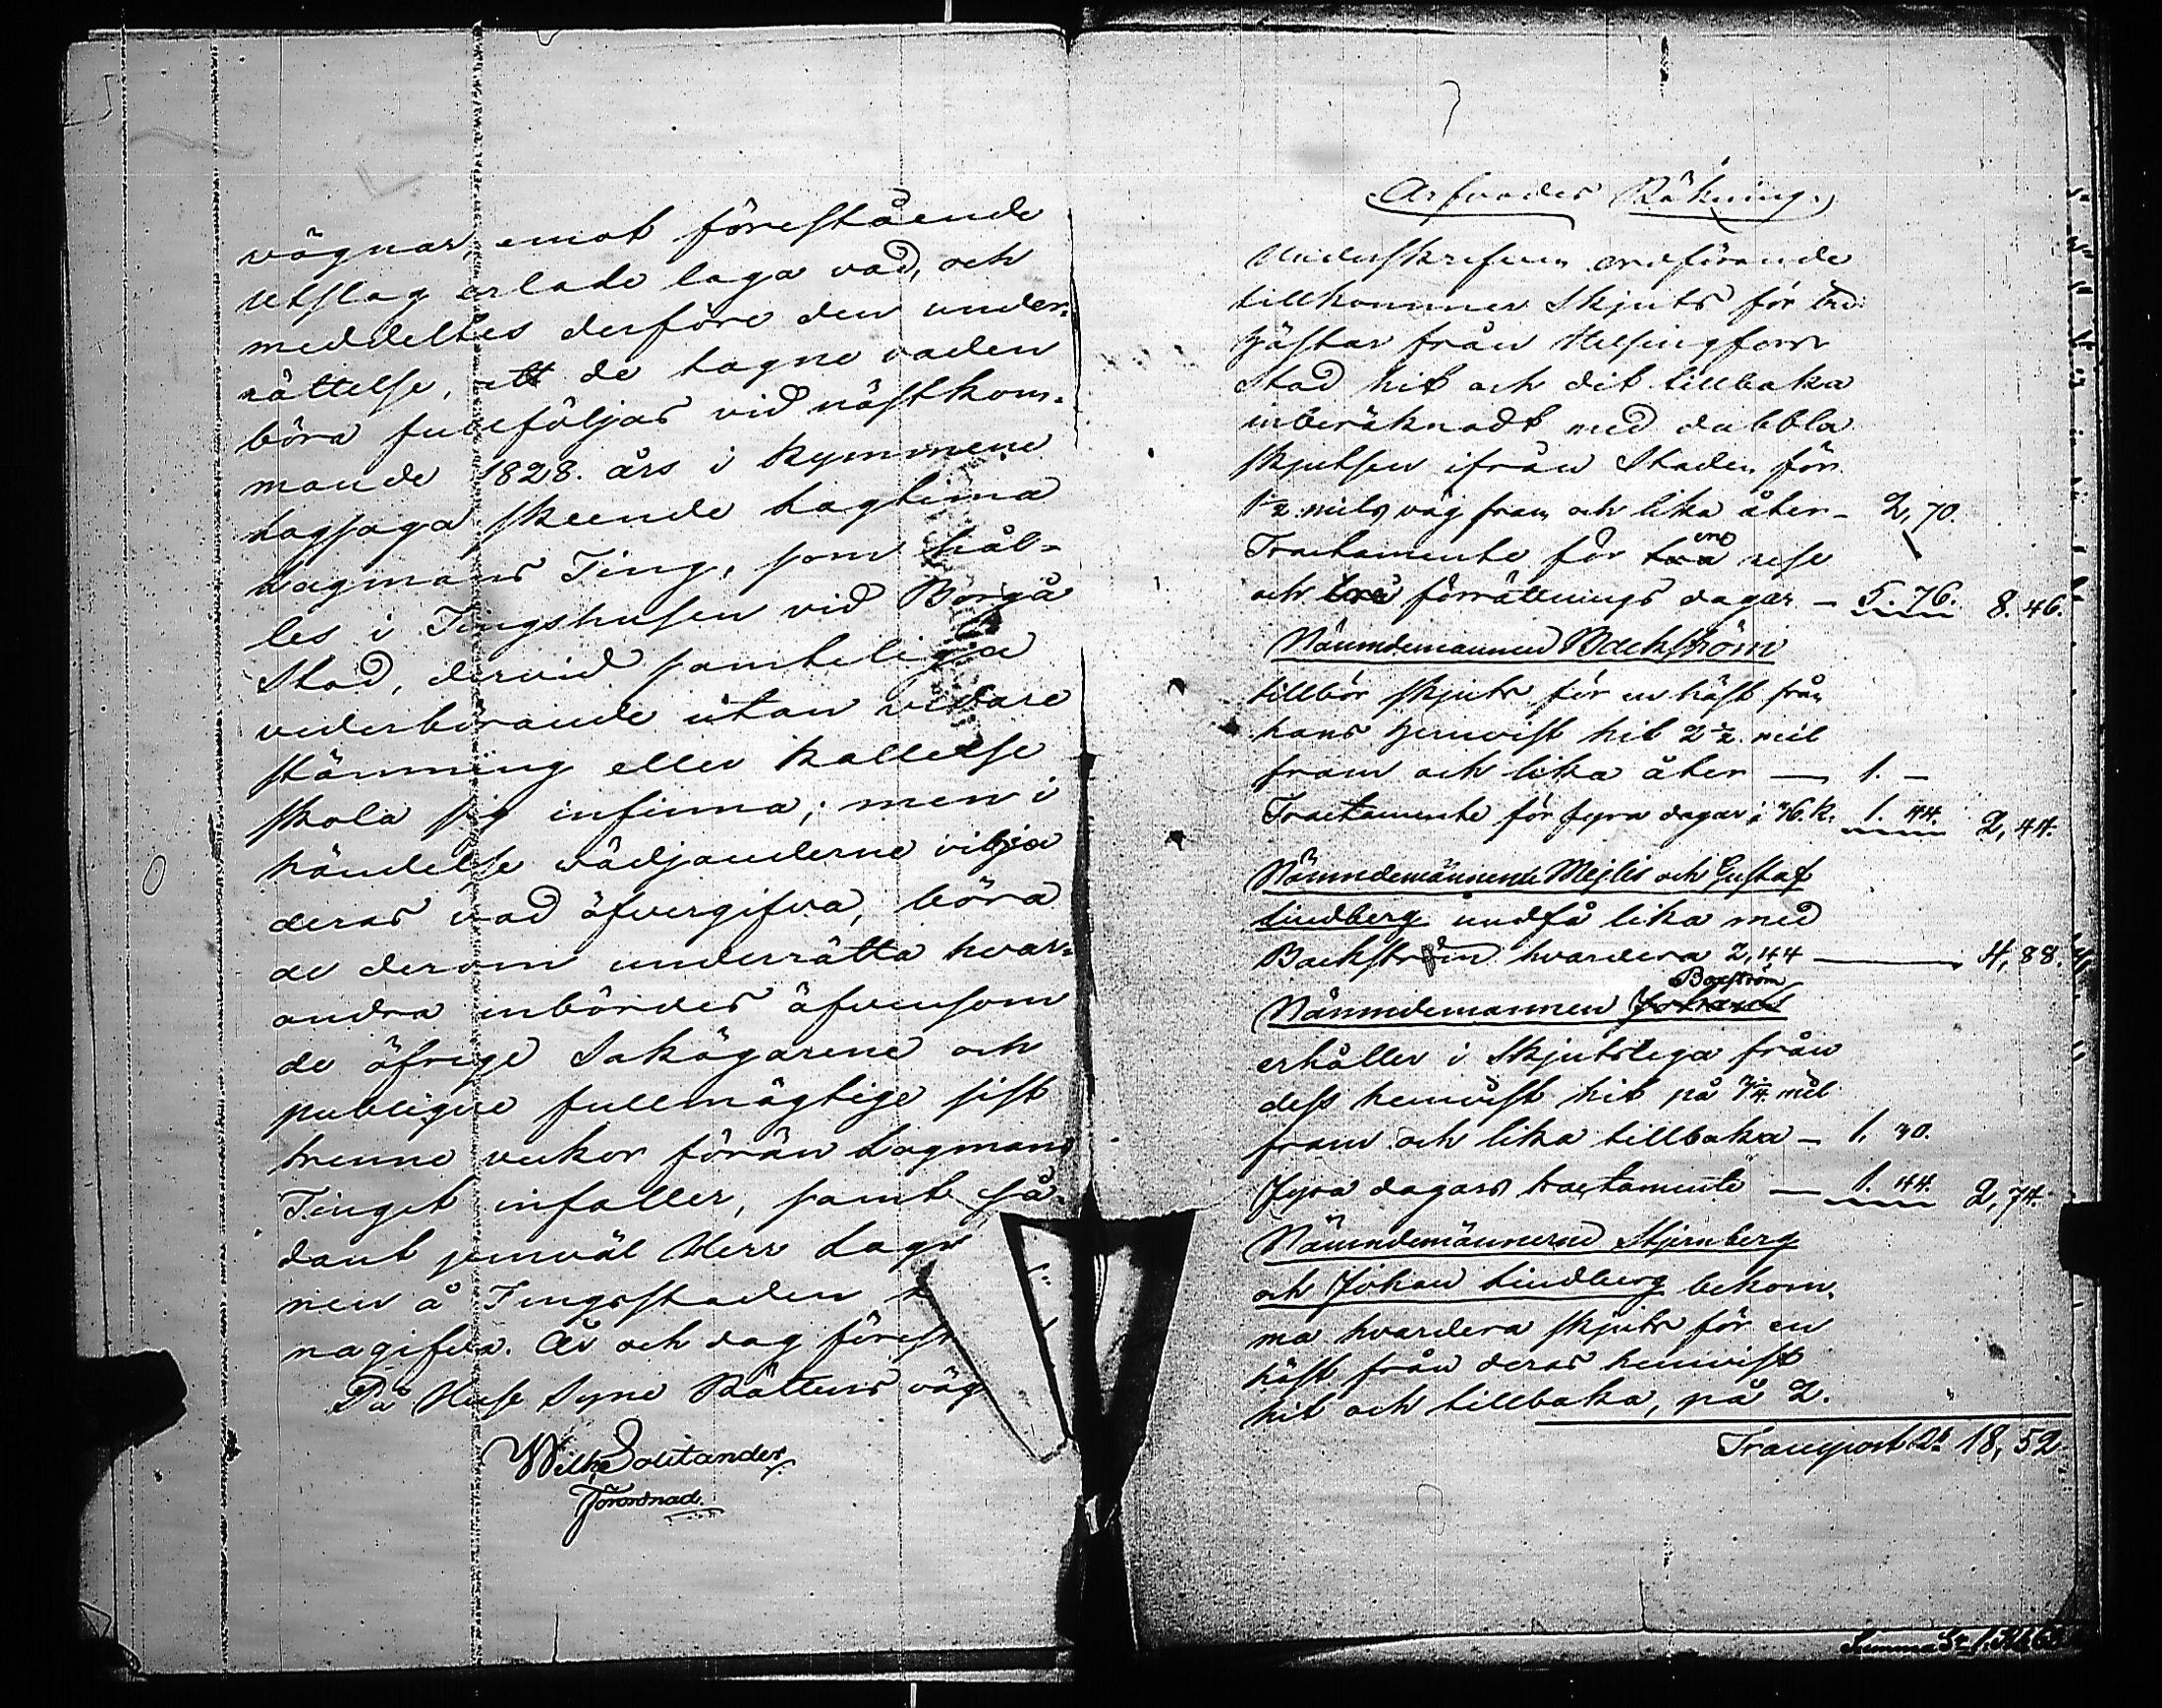 vägnar, emot förestående
Utslag erlade laga vad, och
meddeltes derföre den under-
rättelse, att de tagne vaden
böra fullföljas vid nästkom-
mande 1828. års i Kymmene
Lagsaga skeende Lagtima
Lagmans Ting, som hål-
les i Tingshusen vid Borgå
Stad, dervid samteliga
vederbörande utan vidare
stämning eller kallelse
skola sig infinna; men i
händelse vädjanderne vilja
deras vad öfvergifva, böra
de derom underrätta hvar-
andra inbördes äfvensom
de öfrige Sakägarene och
publique fullmägtige sist
trenne veckor förän Lagmans
Tinget infaller, samt så-
dant jemväl Herr Lagm
nen å Tingsstaden
nagifva. År och dag förest
På Huse Syne Rättens väg
Wilh Solitander
Förordnad.
Arfvodes Räkning.
Underskrefven ordförande
tillkommer Skjuts för tvä
hästar från Helsingfors
Stad hit och dit tillbaka
inberäknadt med dubbla
skjutsen ifrån Staden för
1/2 mils väg fram och lika åter – 2,70.
Tractamente för tva en rese
och förrättnings dagar – 5.76. 8.46.
Nämndemannen Backström
tillbör skjuts för en häst från
hans hemvist hit 2 1/2 mil
fram och lika åter — 1. –
Tractamente för fyra dagar à 36.k. 1.44. 2,44.
Nämndemännerne Mejlis och Gustaf
Lindberg undfå lika med
Backström hvardera 2,44 — 4,88.
Boxström
Nämndemannen
erhåller i Skjutslega från
dess hemvist hit på mil
fram och lika tillbaka – 1.30.
Fyra dagars tractamente — 1.44. 2,74.
Nämndemännerne Stjernberg
och Johan Lindberg bekom-
ma hvardera skjuts för en
häst från deras hemvist
hit och tillbaka, på 2.
Transport 18,52
Summa